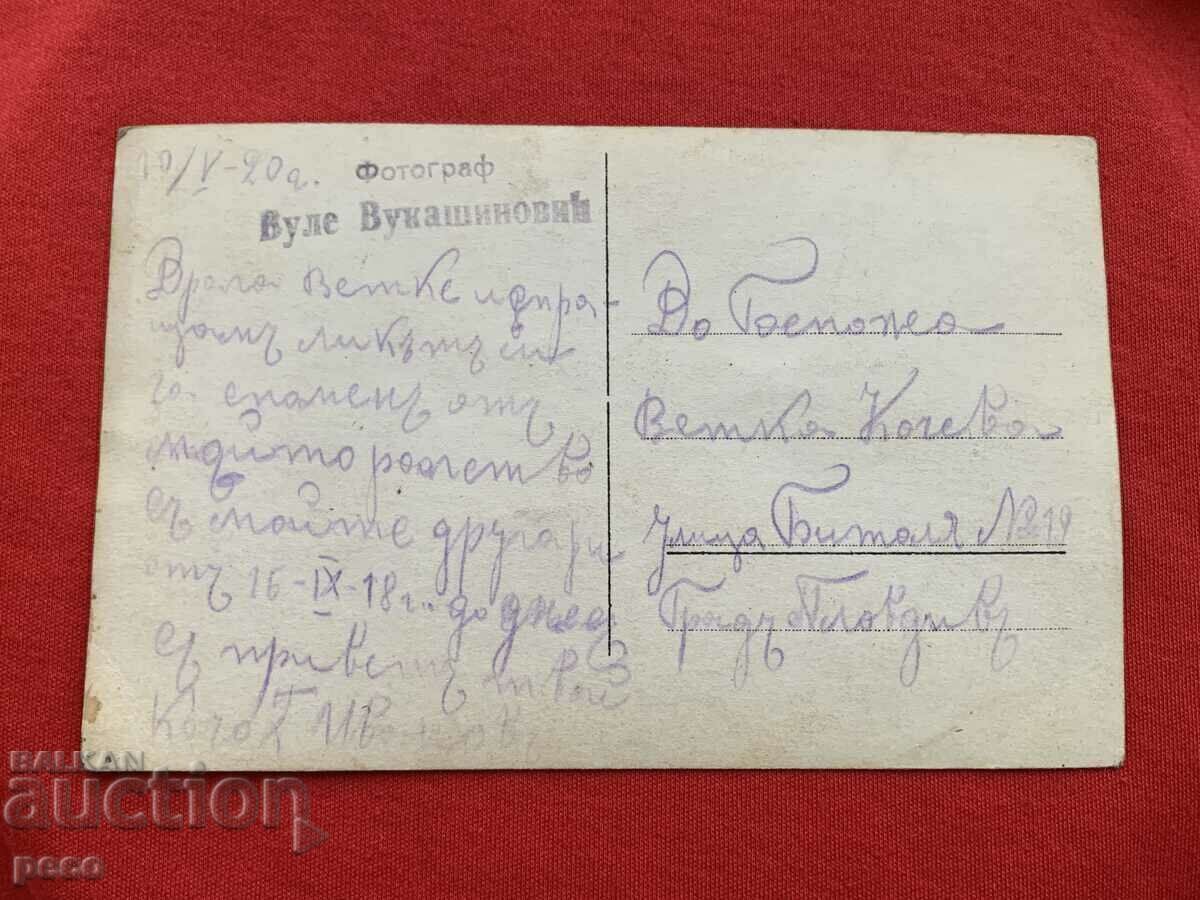 10/V-20 г.
Фотограф
Вуле Вукашиновић
Драга Ветке
щамъ ликътъ си
за споменъ отъ
съ мойте другари
отъ 16-IX-18 г. до днесъ
Съ приветъ твой
Кочо
До Госпожа
Ветка Кочева
улица Битоля № 19
Градъ Пловдивъ
BALKAN
auction
peco